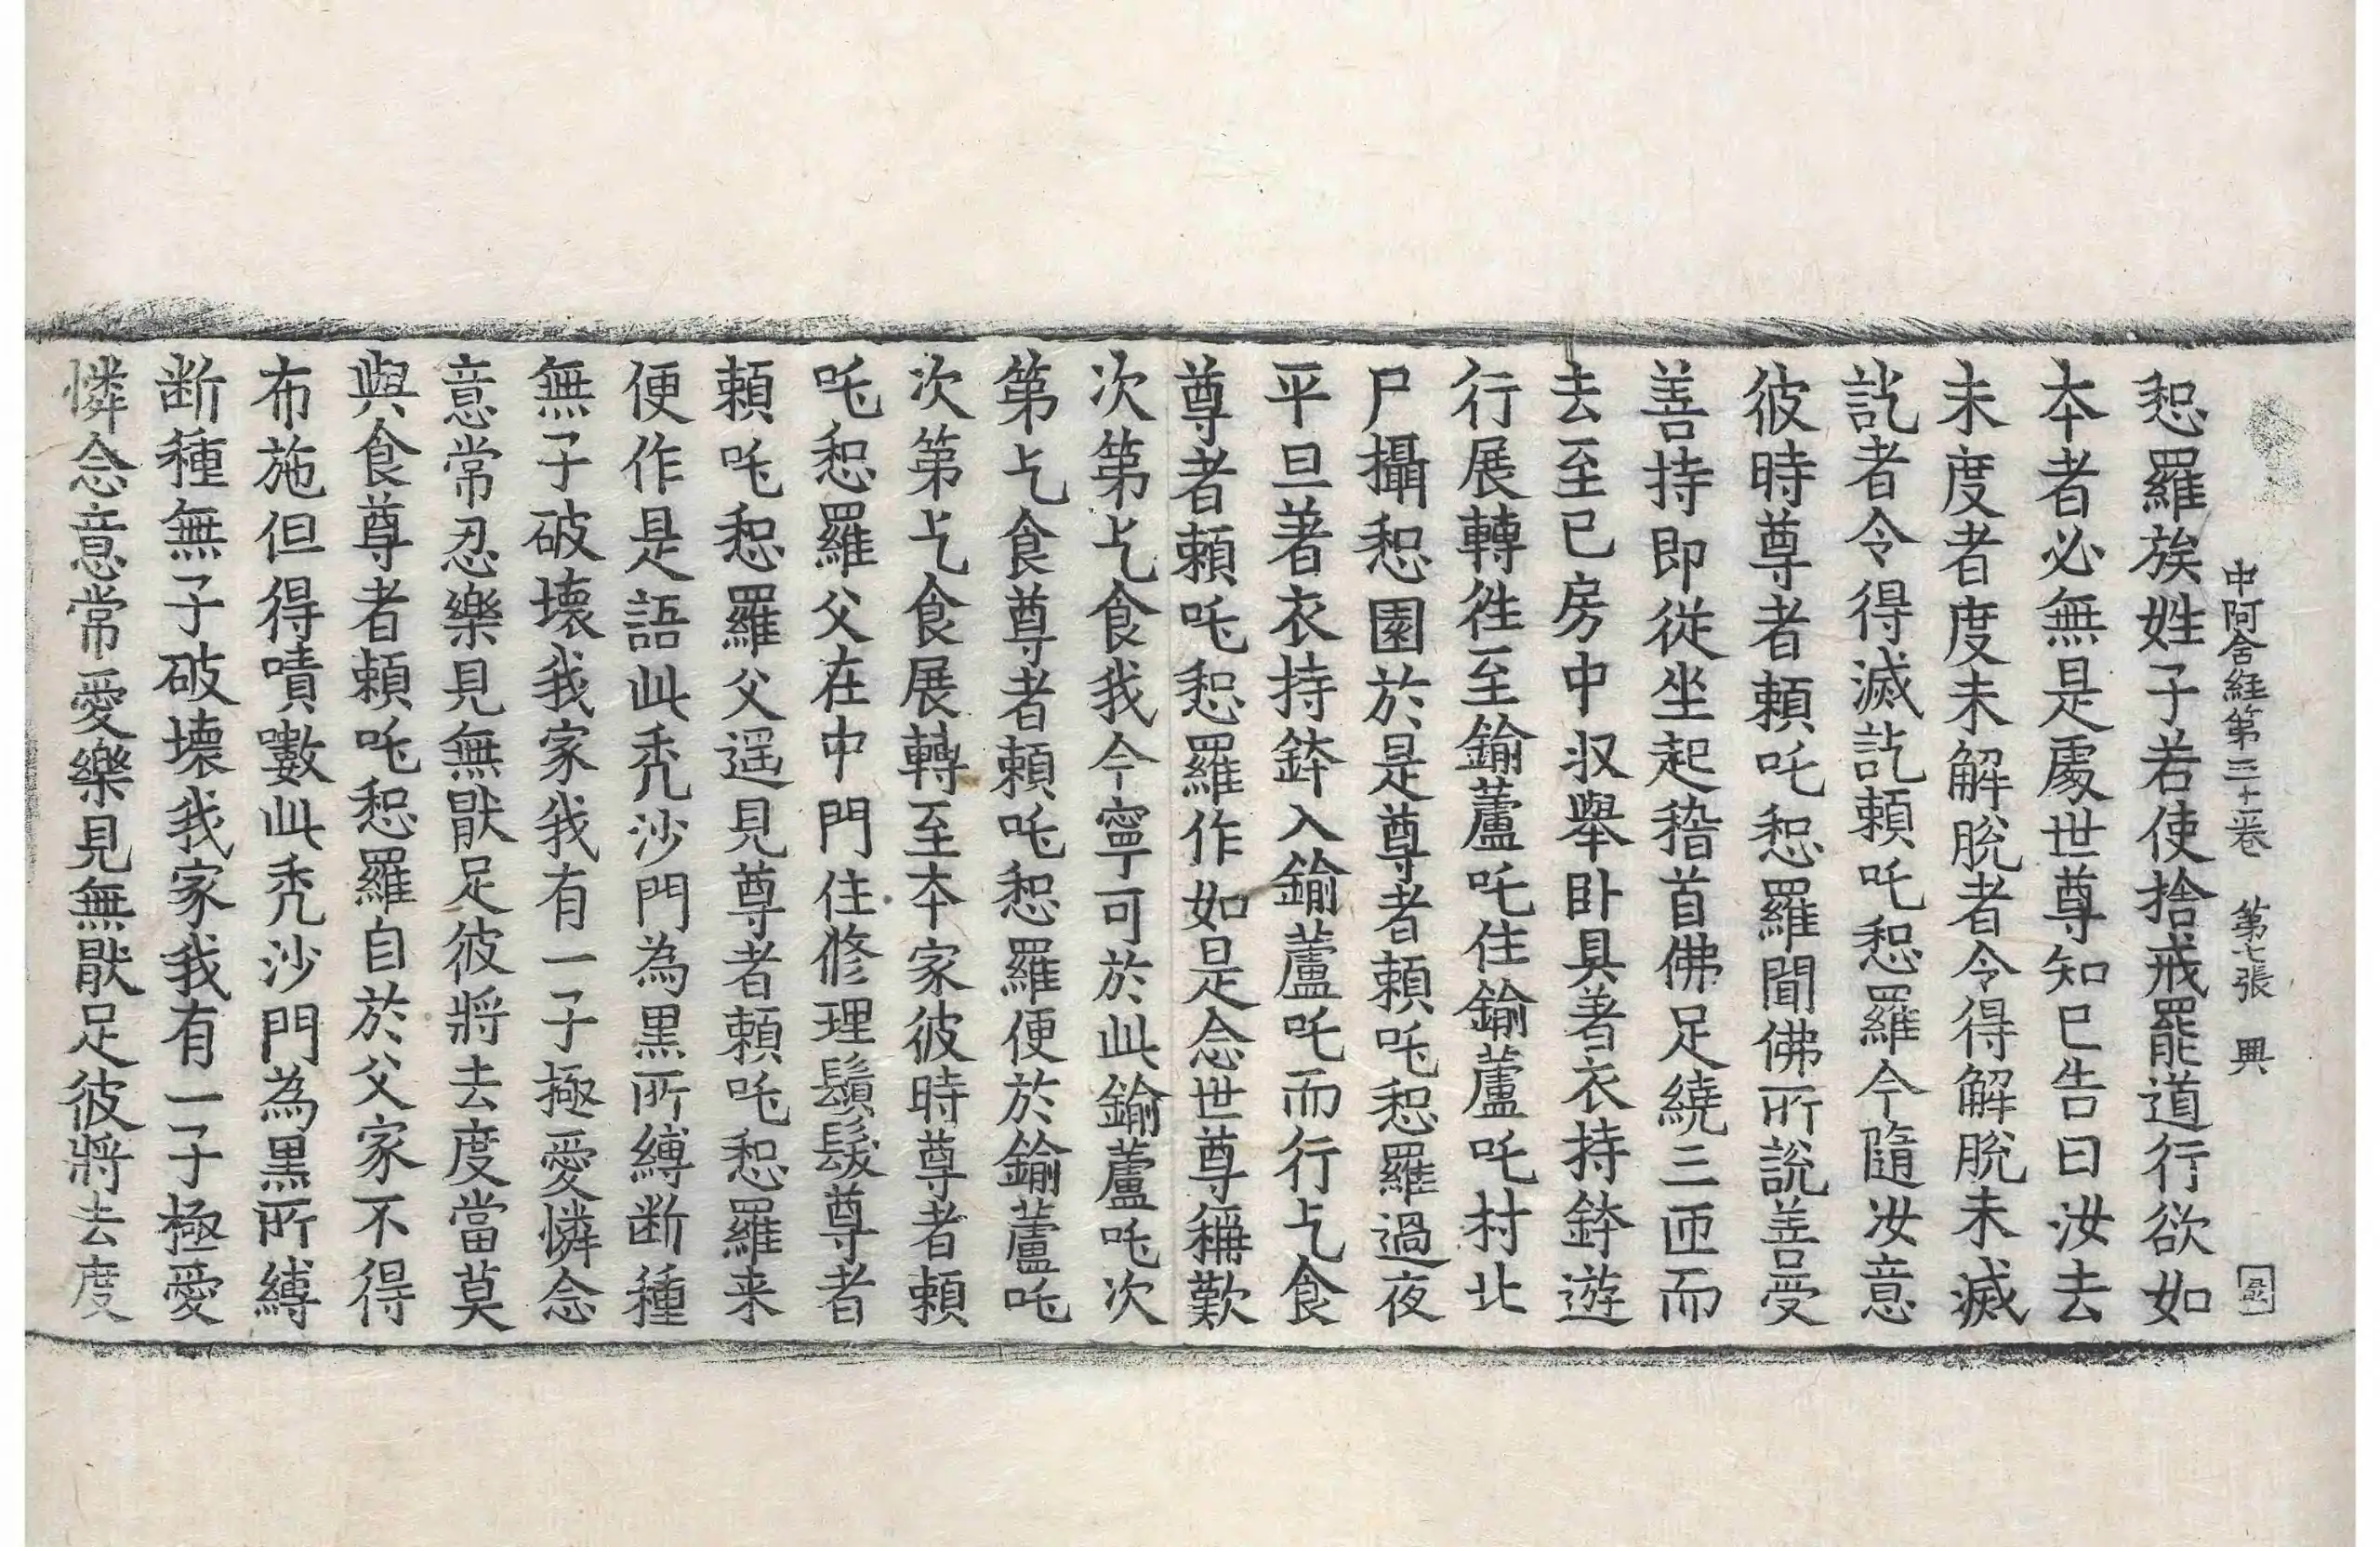 中阿含經第三十一卷　第七張　興
恕羅族姓子若使捨戒罷道行欲如
本者必無是處世尊知已告曰汝去
未度者度未解脫者令得解脫未滅
訖者令得滅訖頼吒恕羅今隨汝意
彼時尊者頼吒恕羅聞佛所說善受
善持即從坐起稽首佛足繞三匝而
去至已房中収舉卧具著衣持鉢遊
行展轉徃至鍮蘆吒住鍮蘆吒村北
尸攝恕園於是尊者頼吒恕羅過夜
平旦著衣持鉢入鍮蘆吒而行乞食
尊者頼吒恕羅作如是念世尊稱歎
次第乞食我今寧可於此鍮蘆吒次
第乞食尊者頼吒恕羅便於鍮蘆吒
次第乞食展轉至本家彼時尊者頼
吒恕羅父在中門住修理鬚髮尊者
頼吒恕羅父遥見尊者頼吒恕羅来
便作是語此禿沙門為黒所縛断種
無子破壞我家我有一子極愛憐念
意常忍樂見無猒足彼將去度當莫
與食尊者頼吒恕羅自於父家不得
布施但得嘖數此禿沙門為黒所縛
断種無子破壞我家我有一子極愛
憐念意常愛樂見無猒足彼將去度